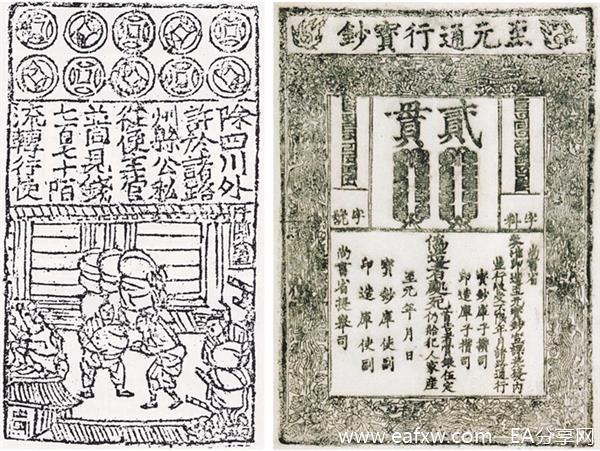 除四川外
許於諸路
州縣公私
從便主管
並同見錢
七百七十陌
流轉行使
至元通行寶鈔
貳貫
字料
字號
尚書省
奏准印造至元寶鈔宣課差役內
並行收受不限年月諸路通行
寶鈔庫子攢司
印造庫子攢司
偽造者處死
首告者賞銀伍定
仍給犯人家產
至元 年 月 日
寶鈔庫使副
印造庫使副
尚書省提舉司
www.eafxw.com - EA分享网